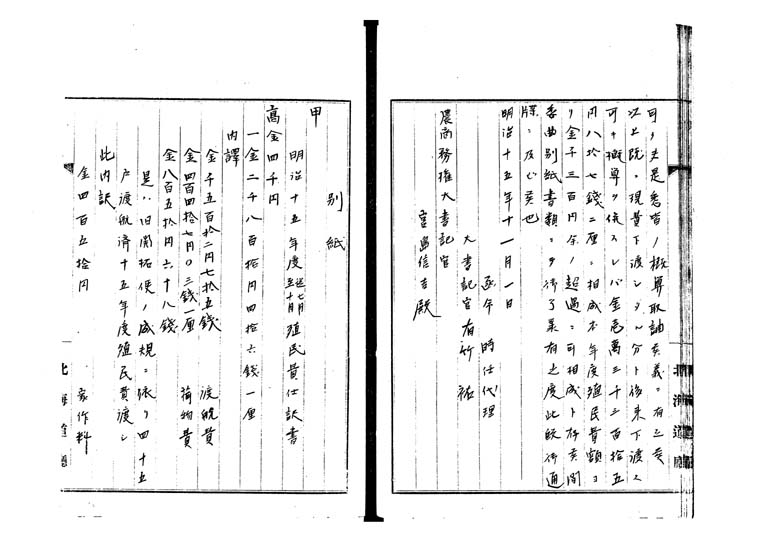 以上既ニ現費下渡シタル分ト後来下渡スヘ
可キ概算ニ依スレバ金壱萬三千三百拾五
円八拾七銭二厘ニ相成本年度殖民費額ヨ
リ金千三百円余ノ超過ニ可相成ト存候間
委曲別紙書類ニテ御了承有之度此段御通
牒ニ及ヒ候也
明治十五年十一月一日
函館県令時任代理
大書記官有竹裕
農商務権大書記官
宮島信吉殿
別紙
明治十五年度従七月至十月殖民費仕訳書
甲
高金四千円
一金二千八百拾円四拾六銭一厘
内譯
金千五百拾二円七拾五銭 渡航費
金四百四拾七円〇三銭一厘 荷物費
金八百五拾円六十八銭
是ハ旧開拓使ノ成規ニ依リ四十五
戸渡航済十五年度殖民費渡シ
此内訳
金四百五拾円 家作料
北海道廳
北海道廳